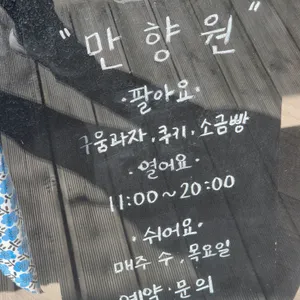 "만향원"
·팔아요·
구움과자, 쿠키, 소금빵
·열어요·
11:00~20:00
·쉬어요·
매주 수, 목요일
예약·문의